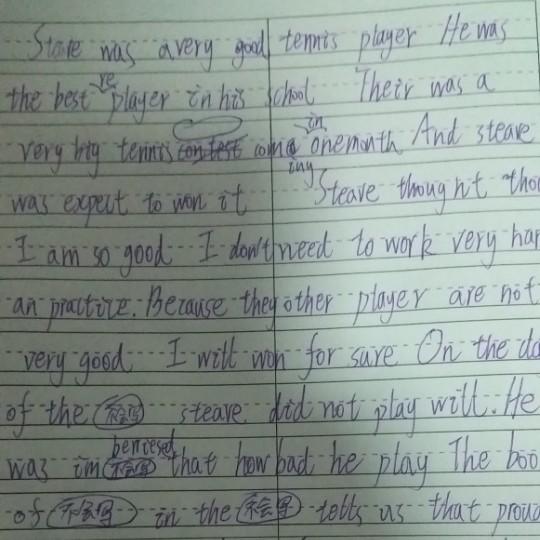 Steave was a very good tennis player He was
the best player in his school Their was a
very big tennis contest coming in one month And steave
was expect to won it Steave thought
I am so good I don't need to work very
an practice. Because they other player are not
very good I will won for sure On the
of the 不会写 steave did not play will. He
was 不会写 that how bad he play The
of 不会写 in the 不会写 tells us that